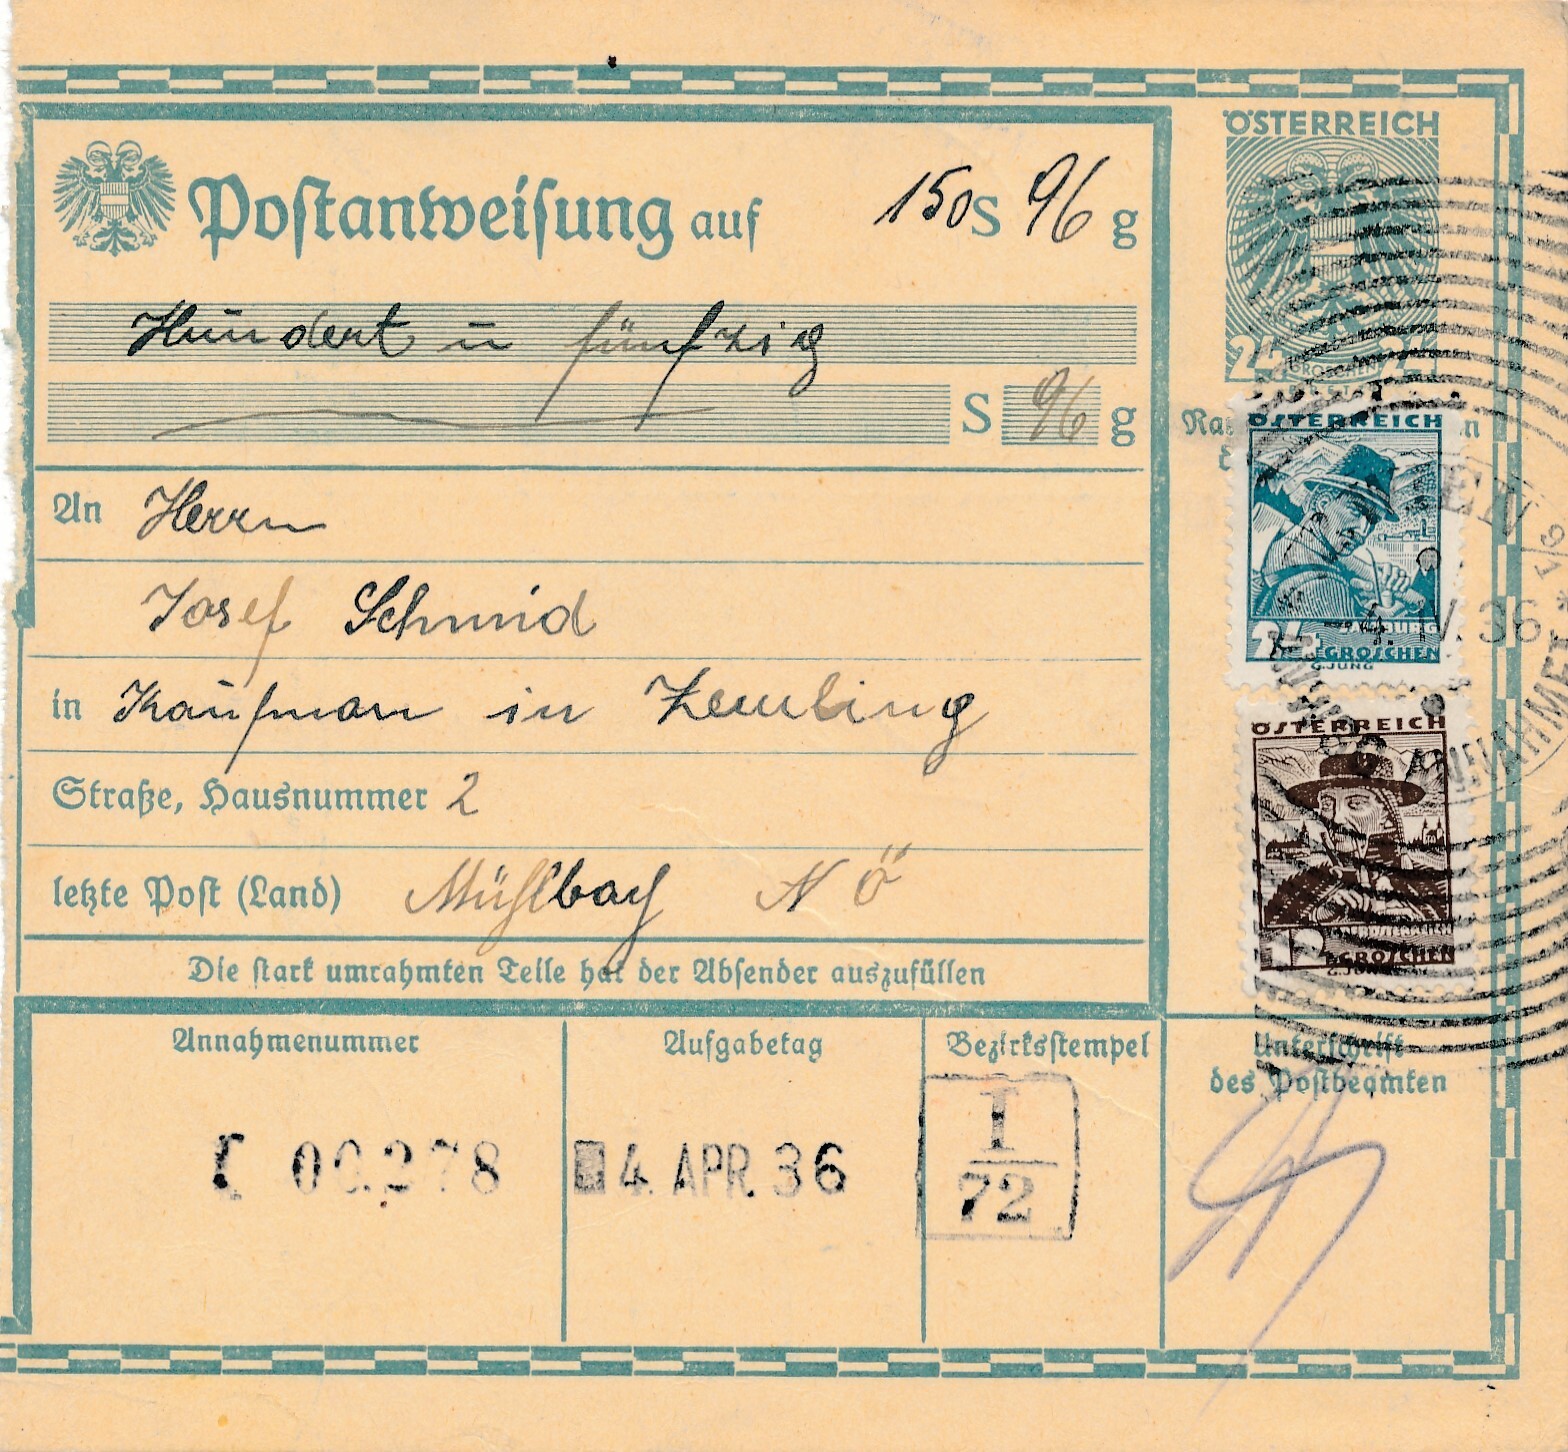 Postanweisung auf 150 S 96 g
Hundert u fünfzig
S 96 g
An Herrn
Josef Schmid
in Kaufman in Zemling
Straße, Hausnummer 2
letzte Post (Land) Mühlbach NÖ
Die stark umrahmten Teile hat der Absender auszufüllen
Annahmenummer
00278
Aufgabetag
4. APR. 36
Bezirksstempel
I
72
ÖSTERREICH
24 GROSCHEN 24
ÖSTERREICH
24 GROSCHEN
G. JUNG
4. IV. 36
ÖSTERREICH
GROSCHEN
Unterschrift
des Postbeamten